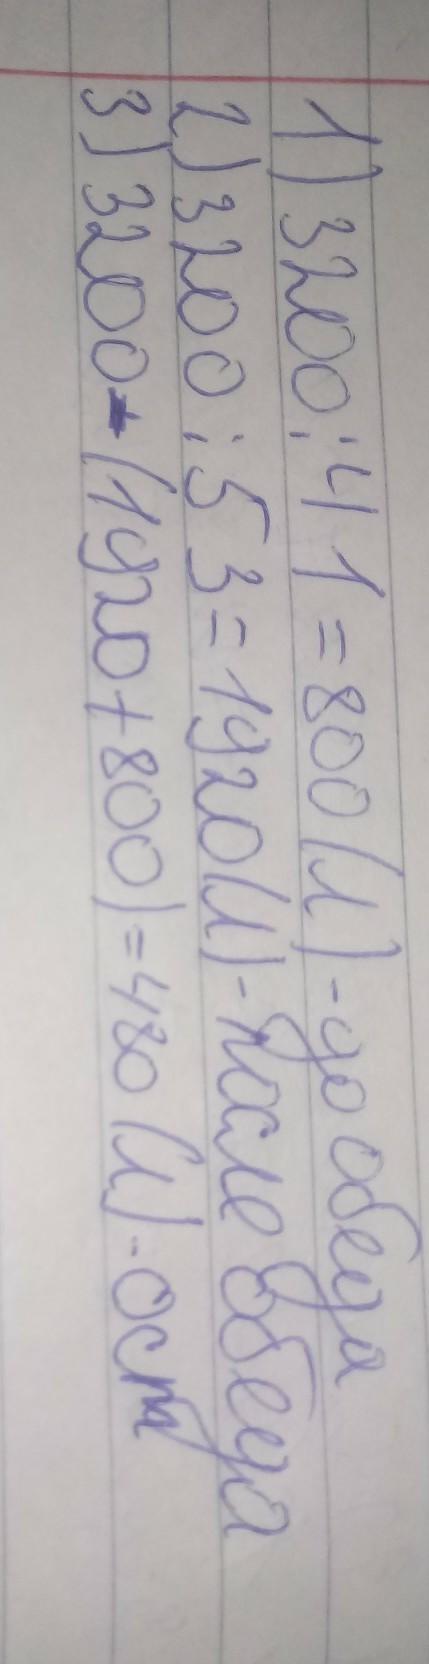 1) 3200 : 4 1 = 800 (л) - до обеда
2) 3200 : 5 3 = 1920 (л) - после обеда
3) 3200 - (1920 + 800) = 480 (л) - ост